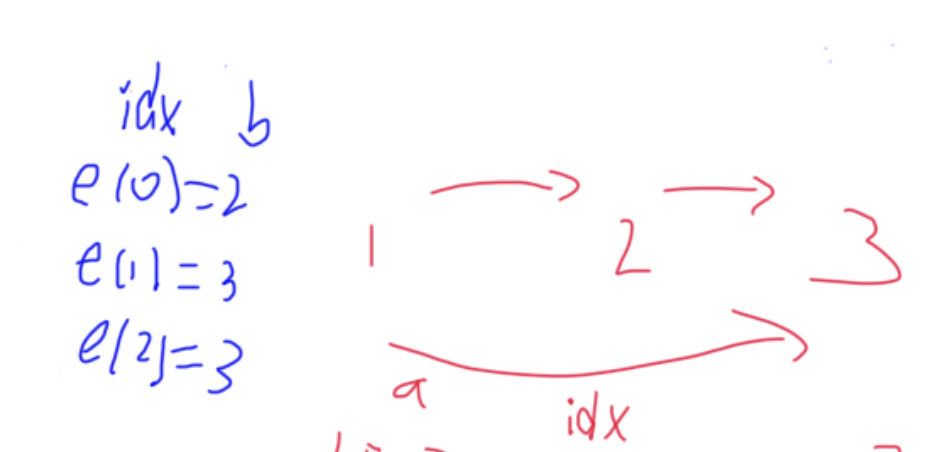 idx b
e(0)=2
e(1)=3
e(2)=3
1 → 2 → 3
a
idx